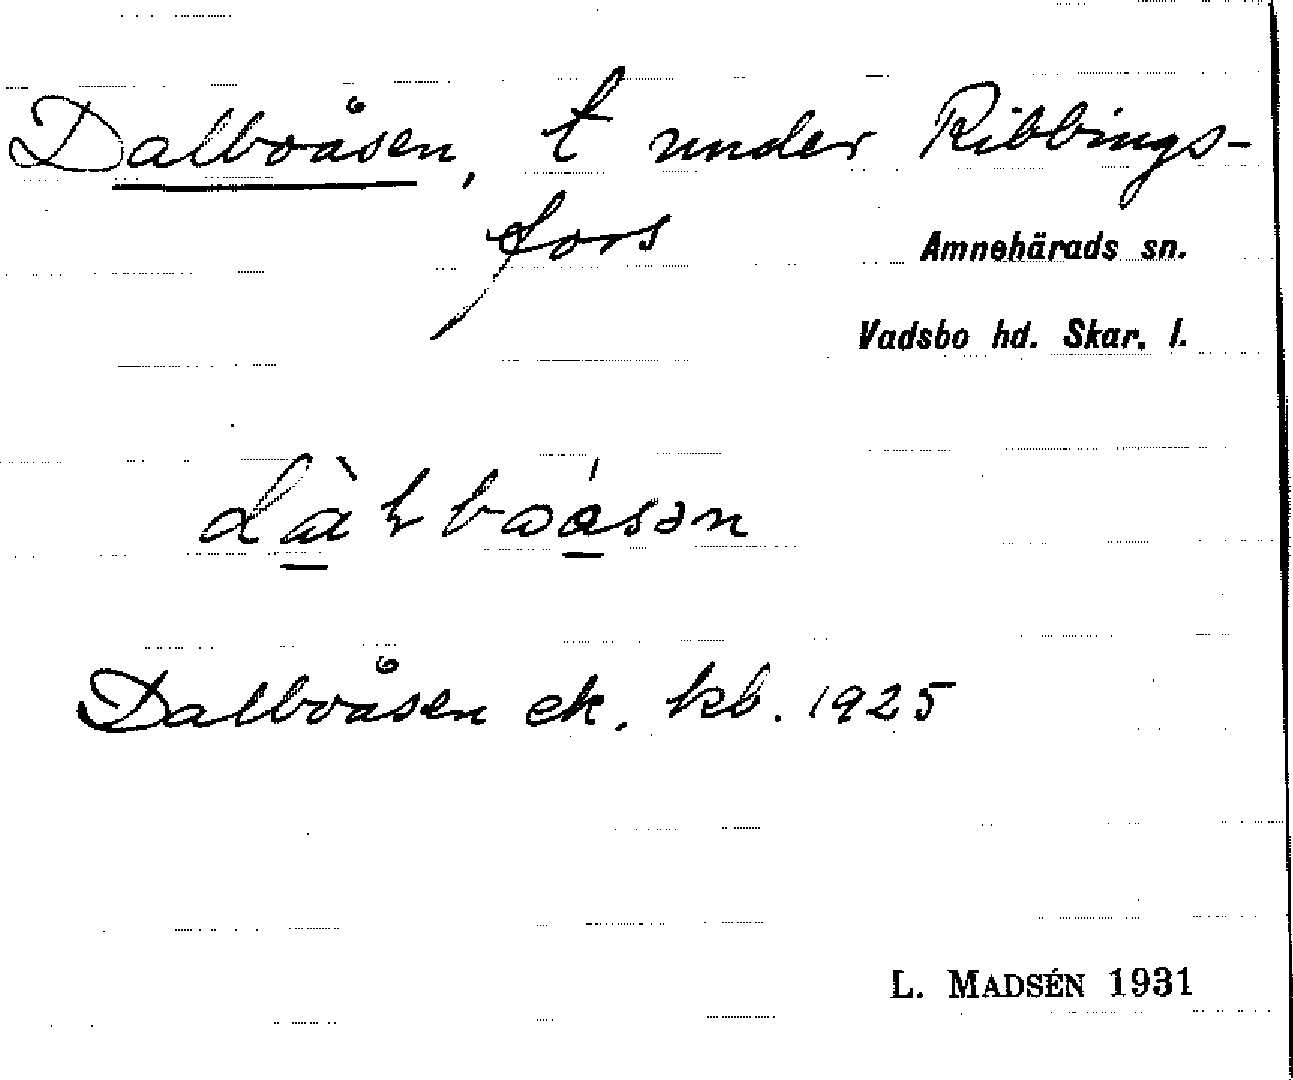 Dalboåsen, t under Ribbings-
fors
Amnehärads sn.
Vadsbo hd. Skar. l.
Dalboåsen ek. kb. 1925
L. MADSÉN 1931